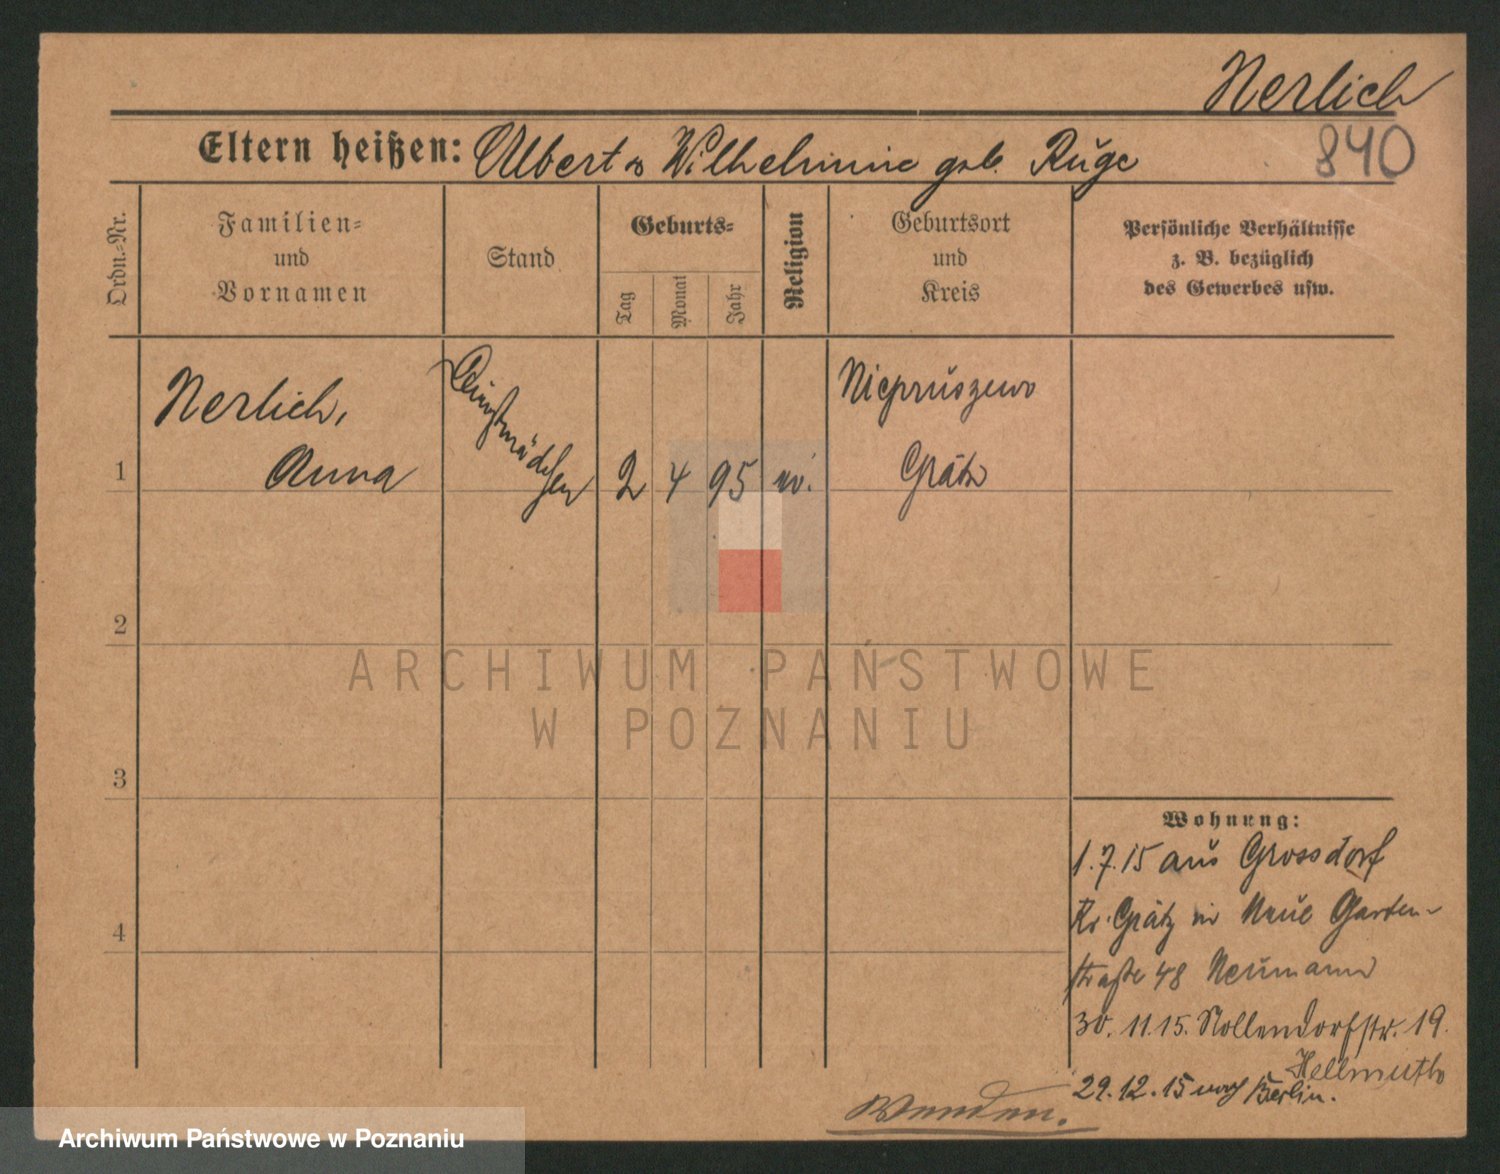 Nerlich
840
Eltern heißen: Albert & Wilhelmine geb. Ruge
Ordn.-Nr.
Familien-
und
Vornamen
Stand
Geburts-
Tag
Monat
Jahr
Religion
Geburtsort
und
Kreis
Persönliche Verhältnisse
z. B. bezüglich
des Gewerbes usw.
1
Nerlich,
Anna
Dienstmädchen
2
4
95
ev.
Niepruszewo
Grätz
2
3
4
ARCHIWUM PAŃSTWOWE
W POZNANIU
Wohnung:
1.7.15 aus Grossdorf
Kr. Grätz in Neue Garten-
straße 48 Neumann
30.11.15. Nollendorfstr. 19.
Hellmuth
29.12.15 nach Berlin.
Wenden.
Archiwum Państwowe w Poznaniu